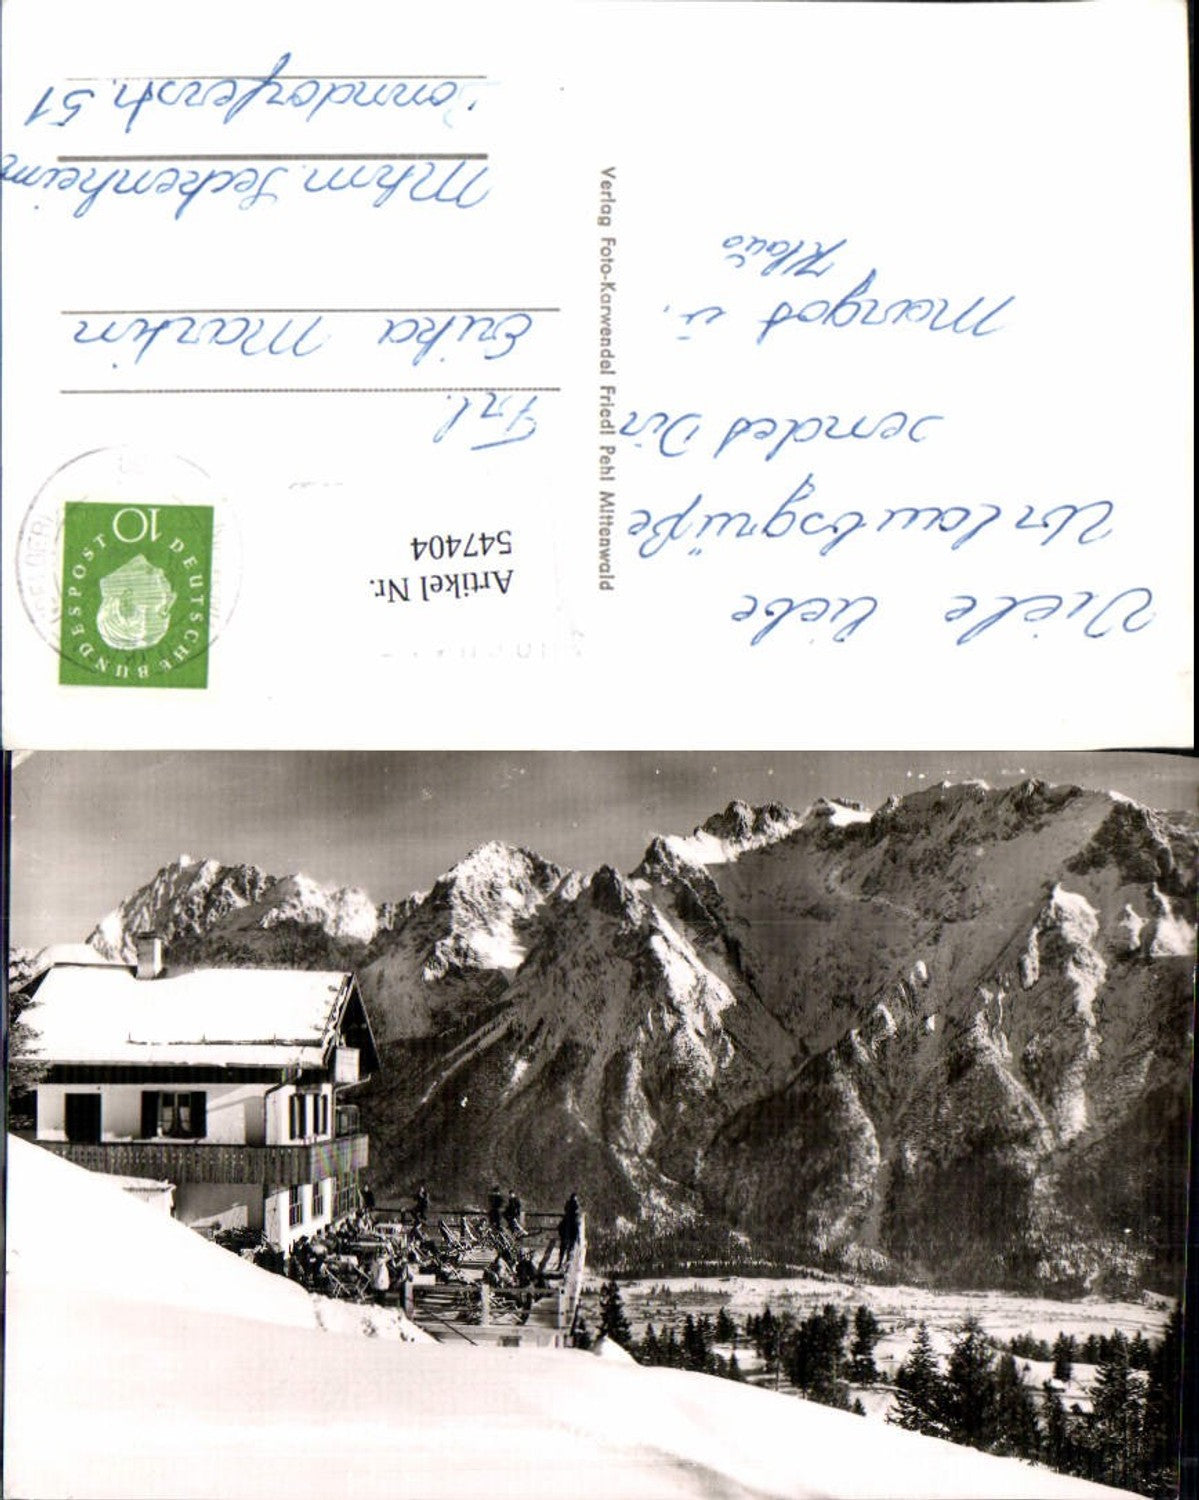 Viele liebe
Urlaubsgrüße
sendet Dir
Margot ŭ.
Klaŭs
Verlag Foto-Karwendel Friedl Pehl Mittenwald
DEUTSCHE BUNDESPOST
10
Artikel Nr.
547404
Frl.
Erika Martin
Mhm. Seckenheim
51